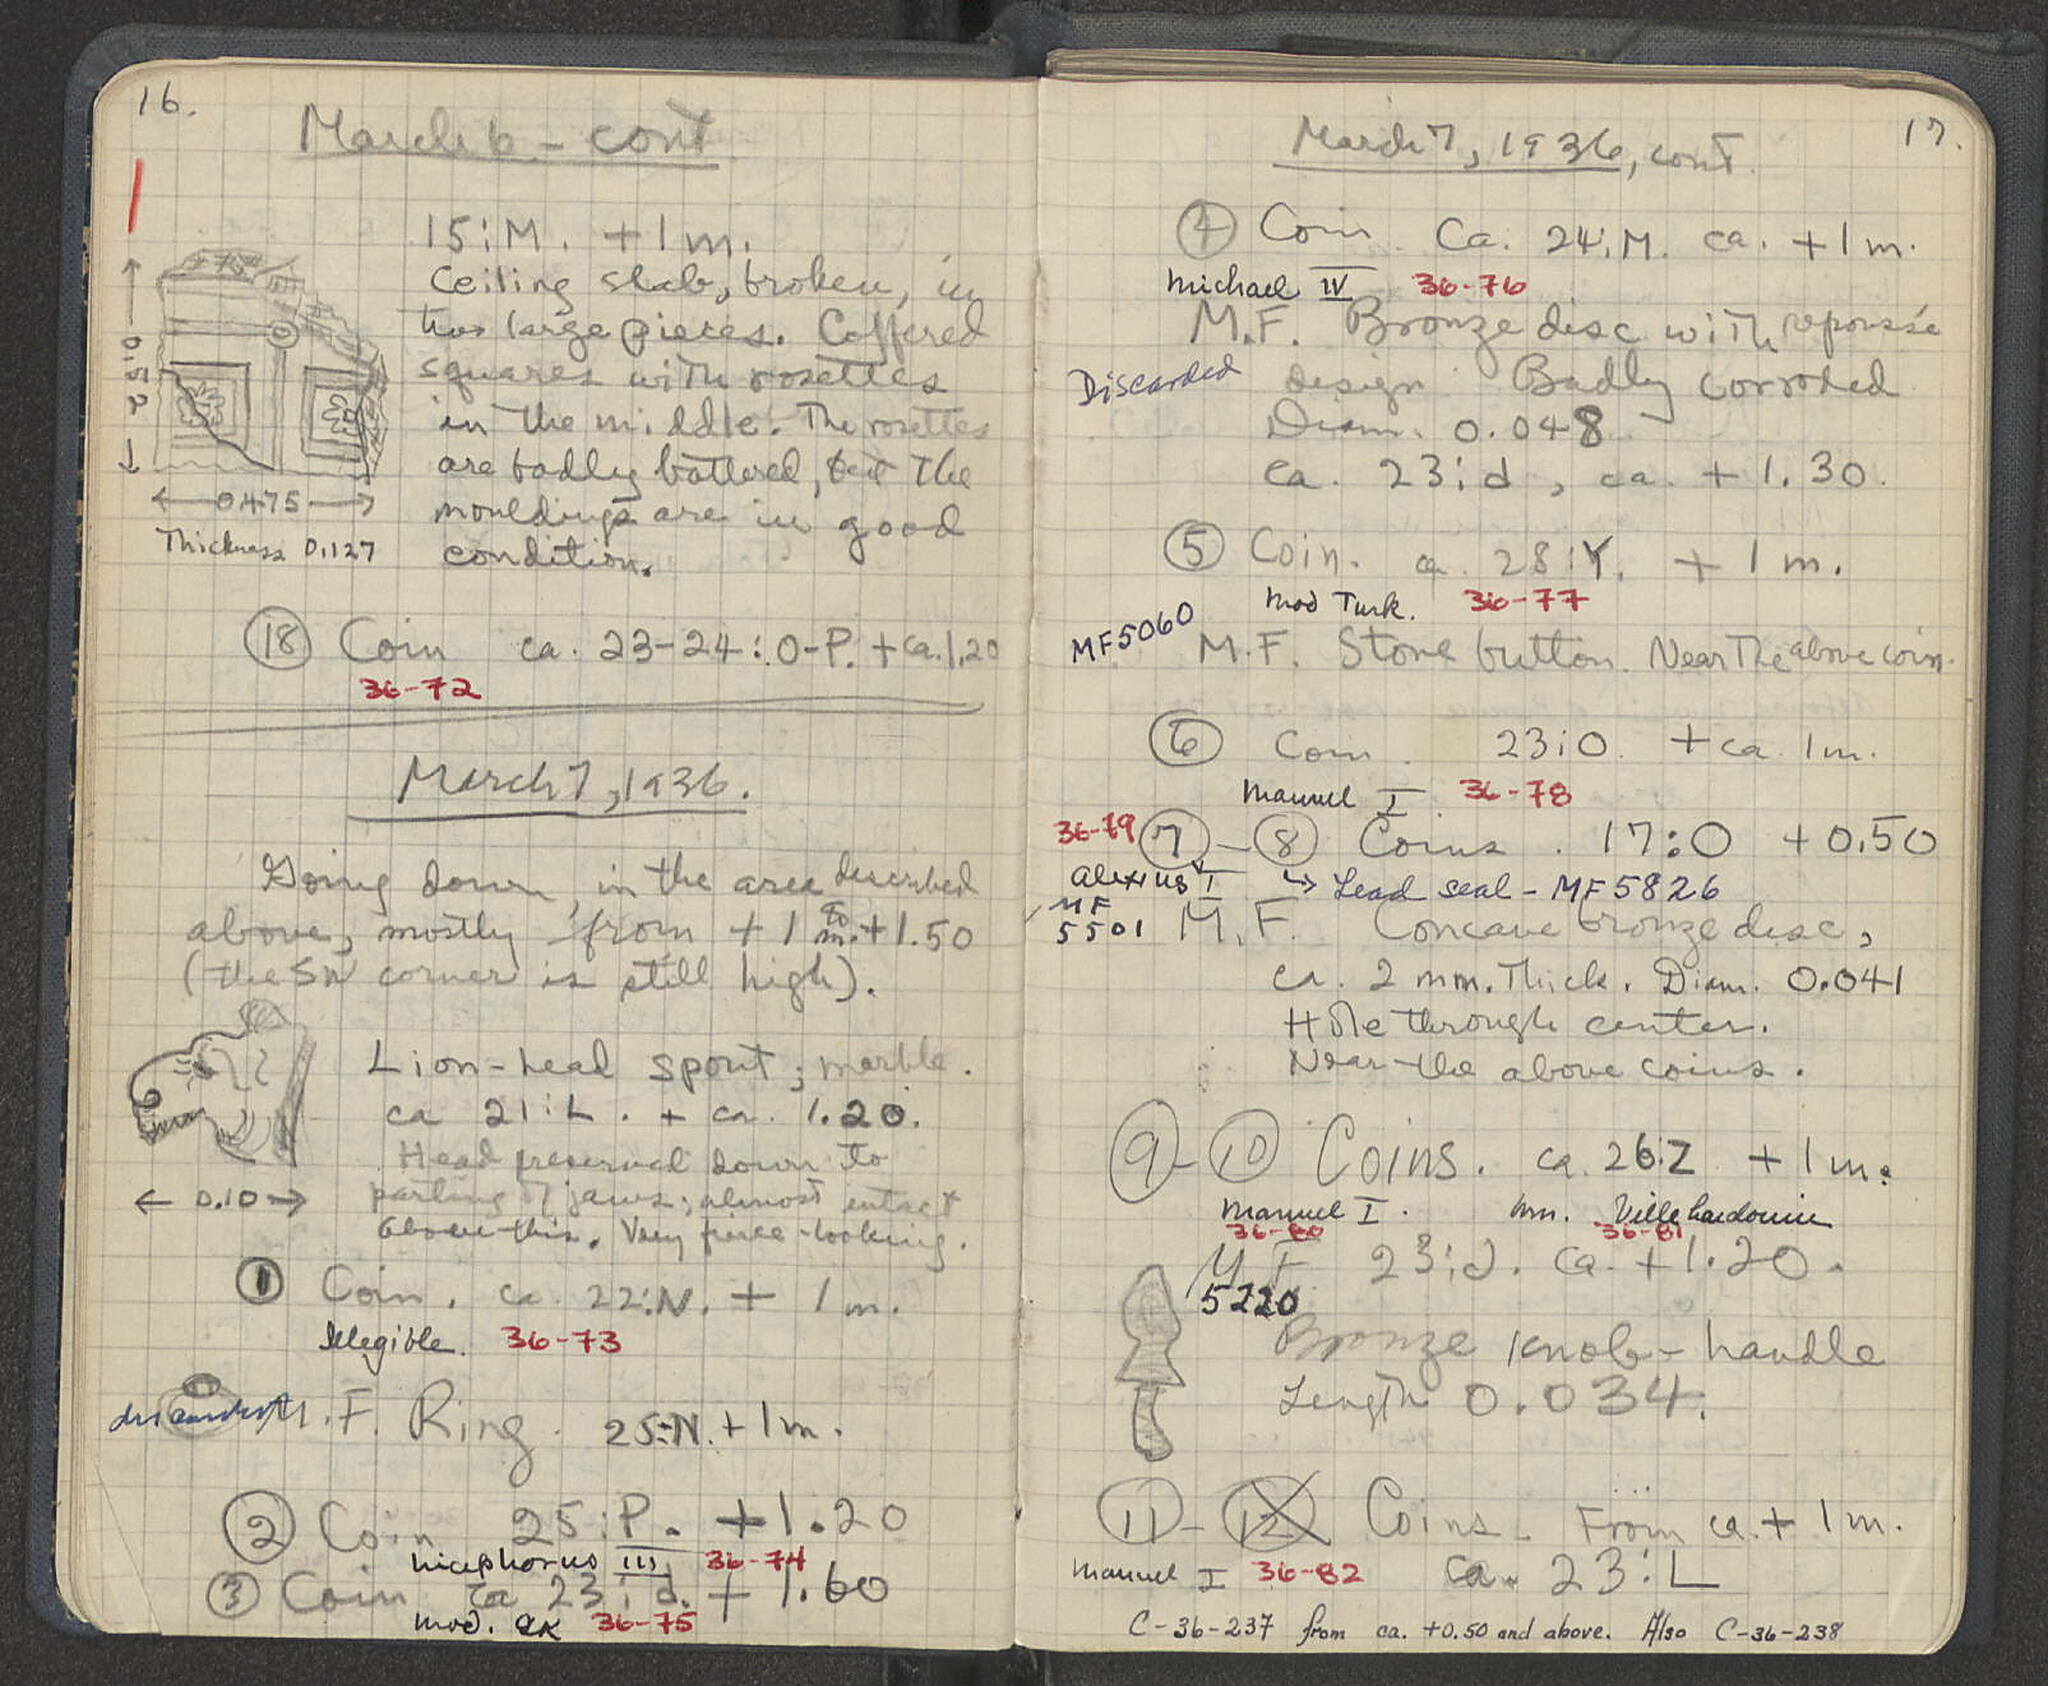 16.
March 6 - cont
15:M. +1m.
Ceiling slab, broken, in
two large pieces. Coffered
squares with rosettes
in the middle. The rosettes
are badly battered, but the
mouldings are in good
condition.
0.512
0.475
Thickness 0.127
18 Coin ca. 23-24:O-P. + ca. 1.20
36-72
March 7, 1936.
Going down, in the area described
above, mostly from +1 m. to +1.50
(the SW corner is still high).
Lion-head spout; marble.
ca 21:L. + ca. 1.20.
Head preserved down to
parting of jaws; almost intact
above this. Very fierce-looking.
0.10
1 Coin. ca. 22:N. + 1m.
Illegible. 36-73
discarded M.F. Ring. 25:N. +1m.
2 Coin 25:P. +1.20
Nicephorus III 36-74
3 Coin ca 23:d. + 1.60
mod. 36-75
17.
March 7, 1936, cont
4 Coin. Ca. 24:M. ca. +1m.
Michael IV 36-76
M.F. Bronze disc with repoussé
Discarded design. Badly corroded
Diam. 0.048
ca. 23:d, ca. +1.30.
5 Coin. ca. 28:Y. +1m.
Mod Turk. 36-77
MF5060 M.F. Stone button. Near the above coin.
6 Coin. 23:O. +ca. 1m.
Manuel I 36-78
36-79 7-8 Coins. 17:O +0.50
Alexius I ↳ Lead seal - MF5826
MF
5501 M.F. Concave bronze disc,
ca. 2 mm. thick. Diam. 0.041
Hole through center.
Near the above coins.
9-10 Coins. ca. 26:Z +1m.
Manuel I. Wm. Villehardouin
36-80 36-81
M F 23:d. ca. +1.20.
5220
Bronze knob-handle
Length 0.034.
11-12 Coins. From ca. +1m.
Manuel I 36-82 ca. 23:L
C-36-237 from ca. +0.50 and above. Also C-36-238